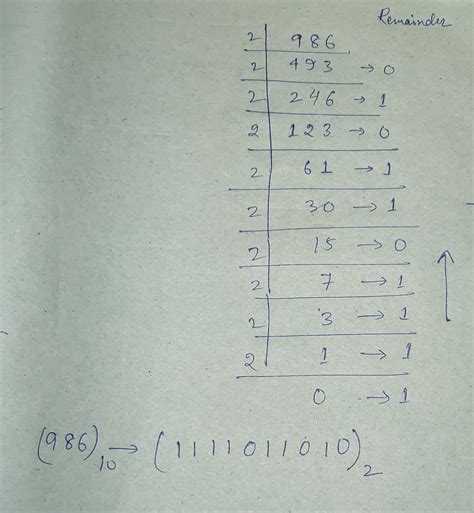 Remainder
2 986
2 493 → 0
2 246 → 1
2 123 → 0
2 61 → 1
2 30 → 1
2 15 → 0
2 7 → 1
2 3 → 1
2 1 → 1
0 → 1
(986)10 → (1111011010)2